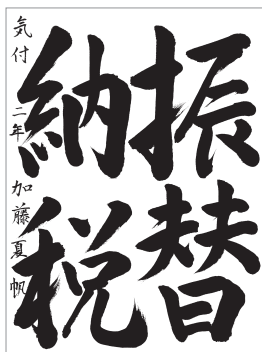 振替
納税
気付 二年 加藤夏帆